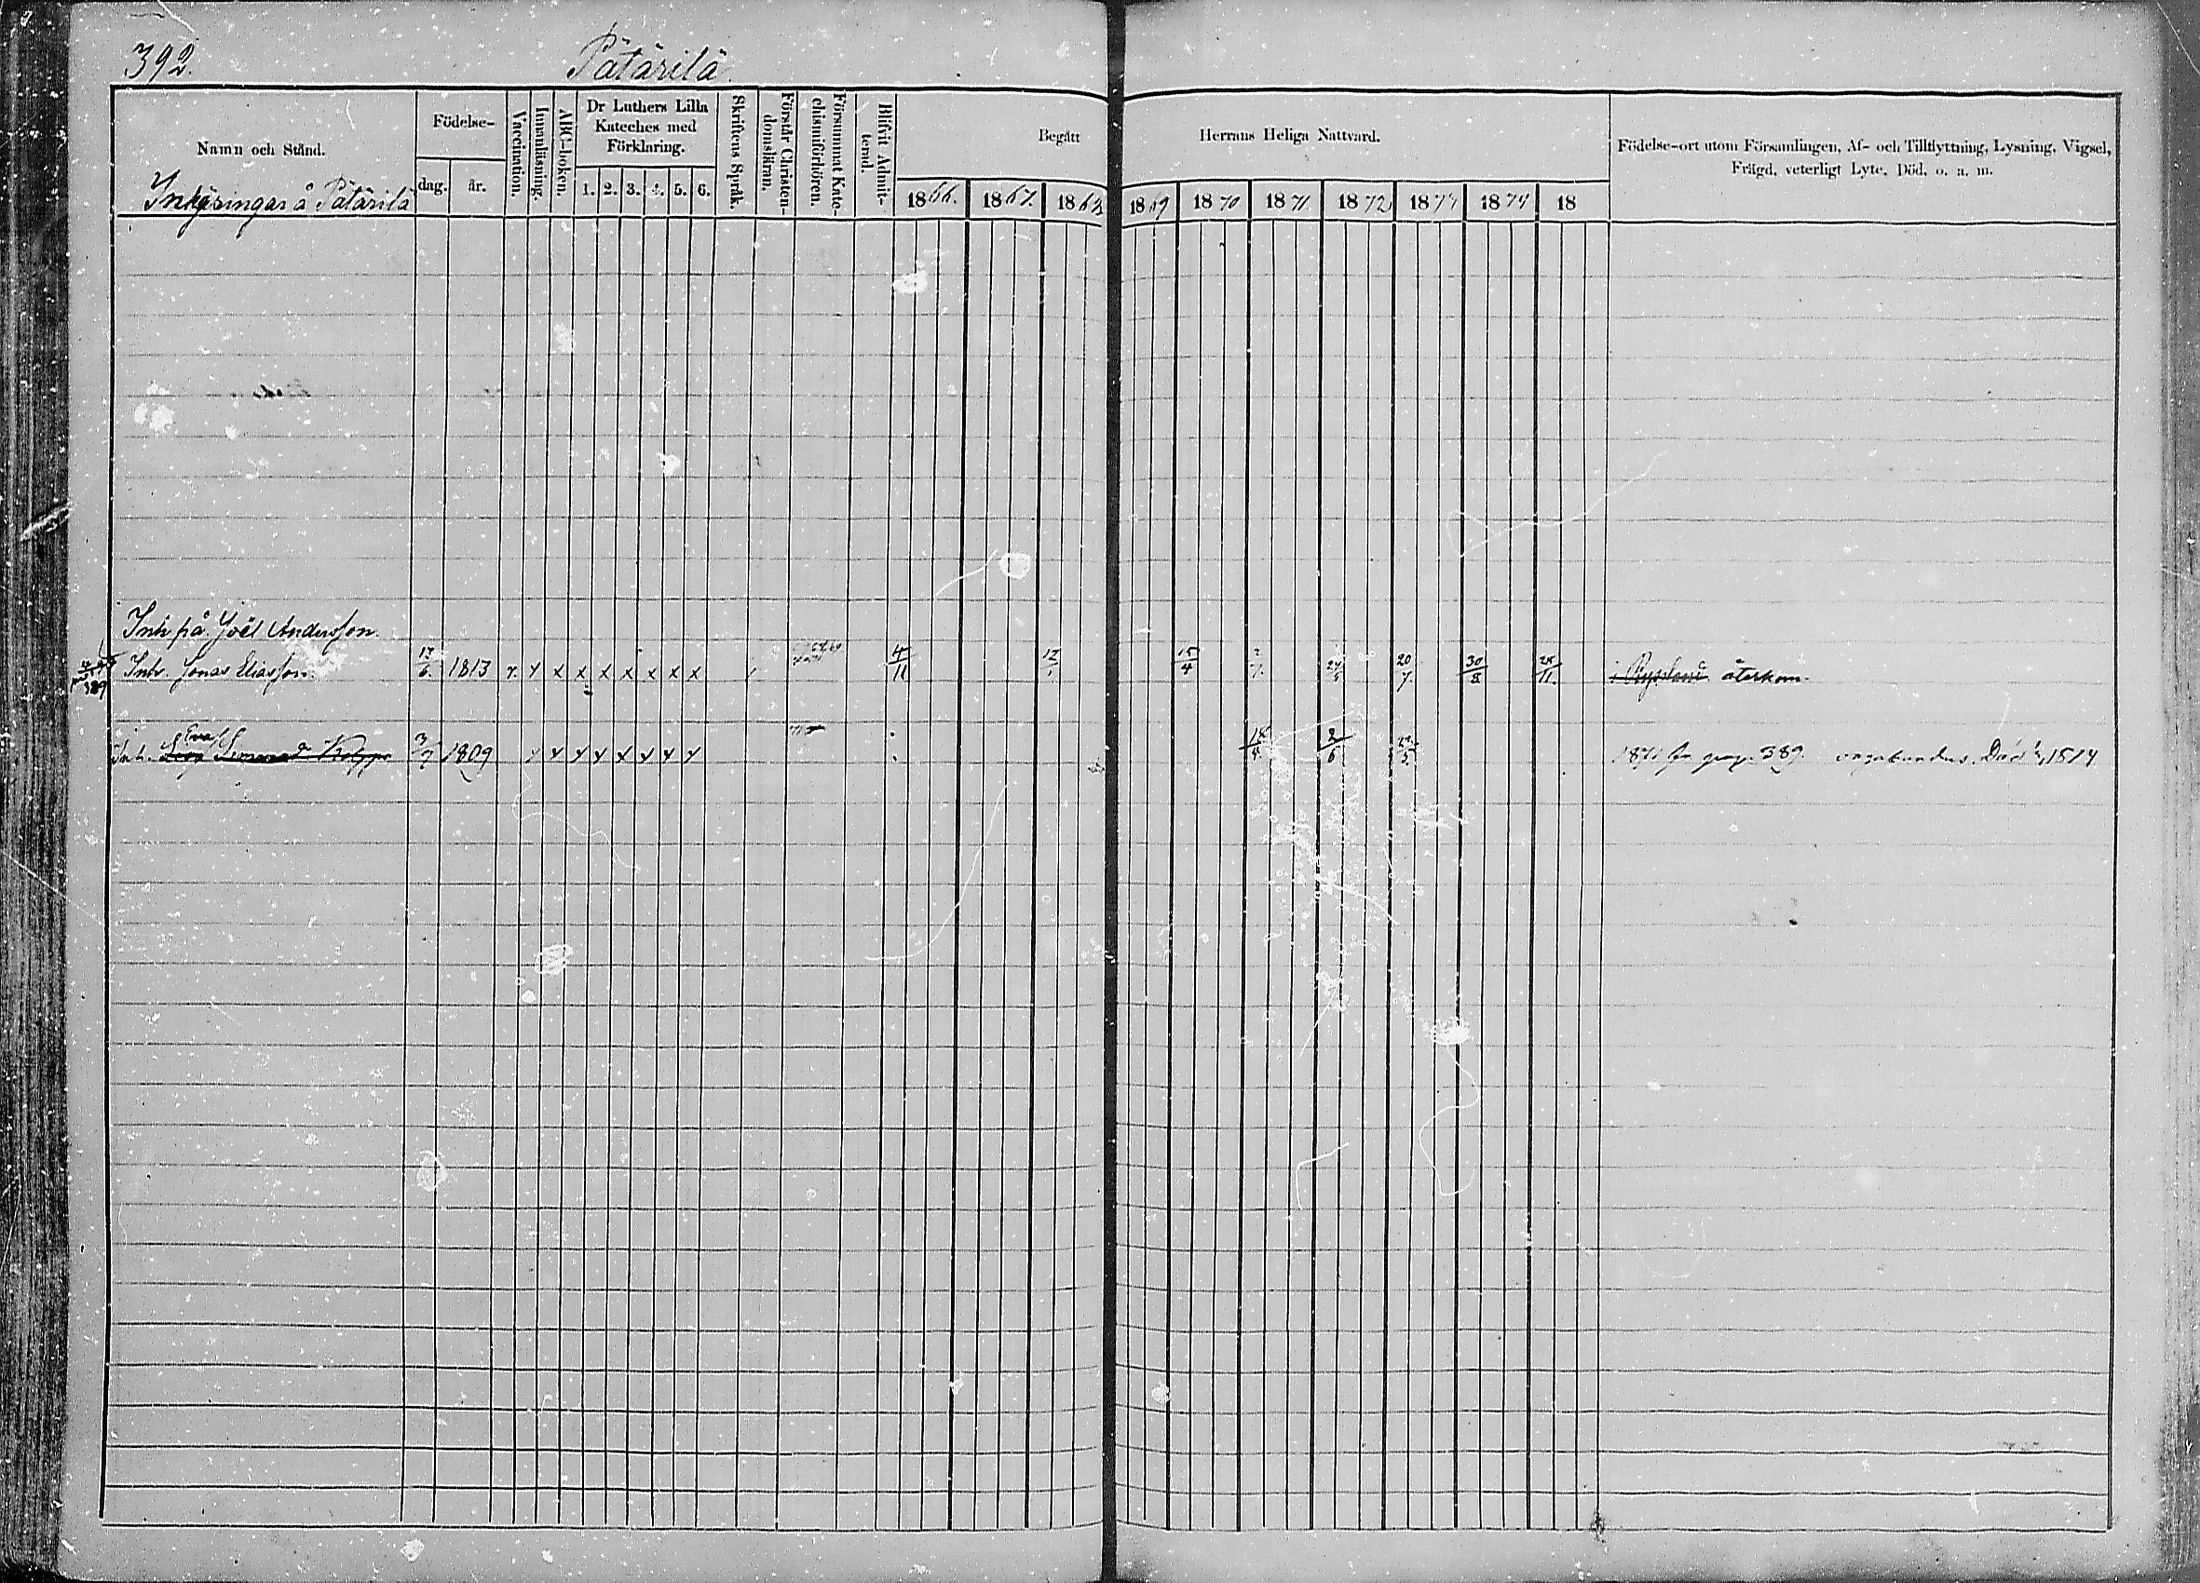 392.
Pätärilä
Namn och Stånd.
Inhysingar å Pätärilä
Födelse-
dag. år.
Vaccination.
Innanläsning.
ABC-boken.
Dr Luthers Lilla
Kateches med
Förklaring.
1. 2. 3. 4. 5. 6.
Skriftens Språk.
Förstår Christen-
domsläran.
Försummat Kate-
chismiförhören.
Blifvit Admit-
terad.
Begått Herrans Heliga Nattvard.
1866. 1867. 1868 1869 1870 1871 1872 1873 1874 18
Födelse-ort utom Församlingen, Af- och Tillflyttning, Lysning, Vigsel,
Frägd, veterligt Lyte, Död, o. a. m.
Inh på Joël Andersson.
389 Inh. Jonas Eliasson. 17/6. 1813 x x x x x x x 4/11 15/4 20/7. 30/8 25/11. i Ryssland återkom.
Eva
Inh. 3/7 1809 x x x x x x x 18/4 2/6 1871 fr pag. 389. vagabundus. Död 1874